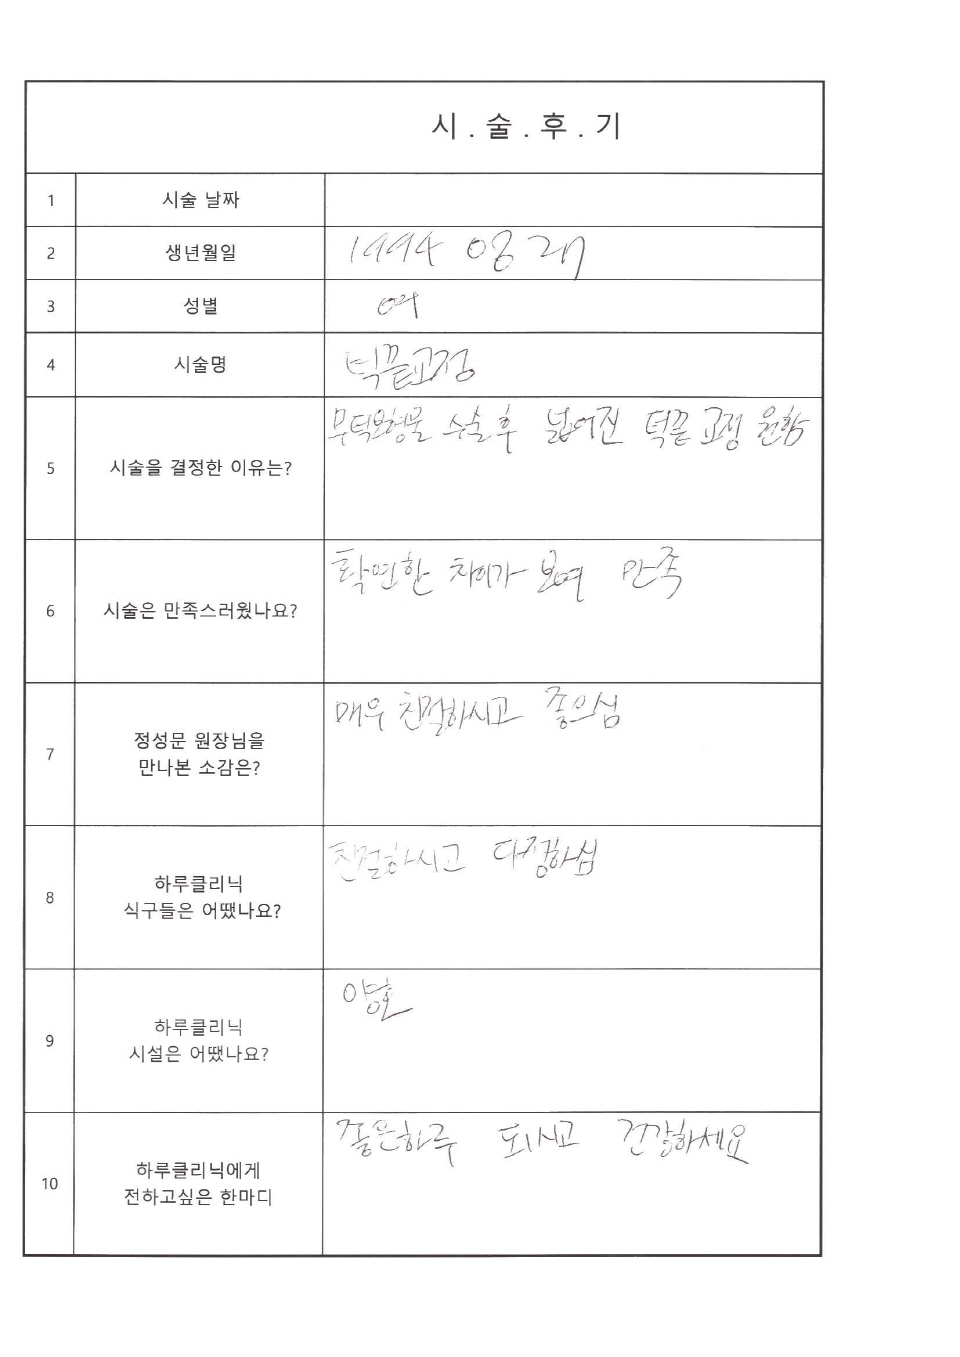 시.술.후.기
1 시술 날짜
2 생년월일 1994
3 성별 여
4 시술명 턱끝교정
5 시술을 결정한 이유는? 무턱보형물 수술후 넓어진 턱끝 교정 원함
6 시술은 만족스러웠나요? 확연한 차이가 보여 만족
7 정성문 원장님을
만나본 소감은? 매우 친절하시고 좋으심
8 하루클리닉
식구들은 어땠나요? 친절하시고 다정하심
9 하루클리닉
시설은 어땠나요? 양호
10 하루클리닉에게
전하고싶은 한마디 좋은하루 되시고 건강하세요